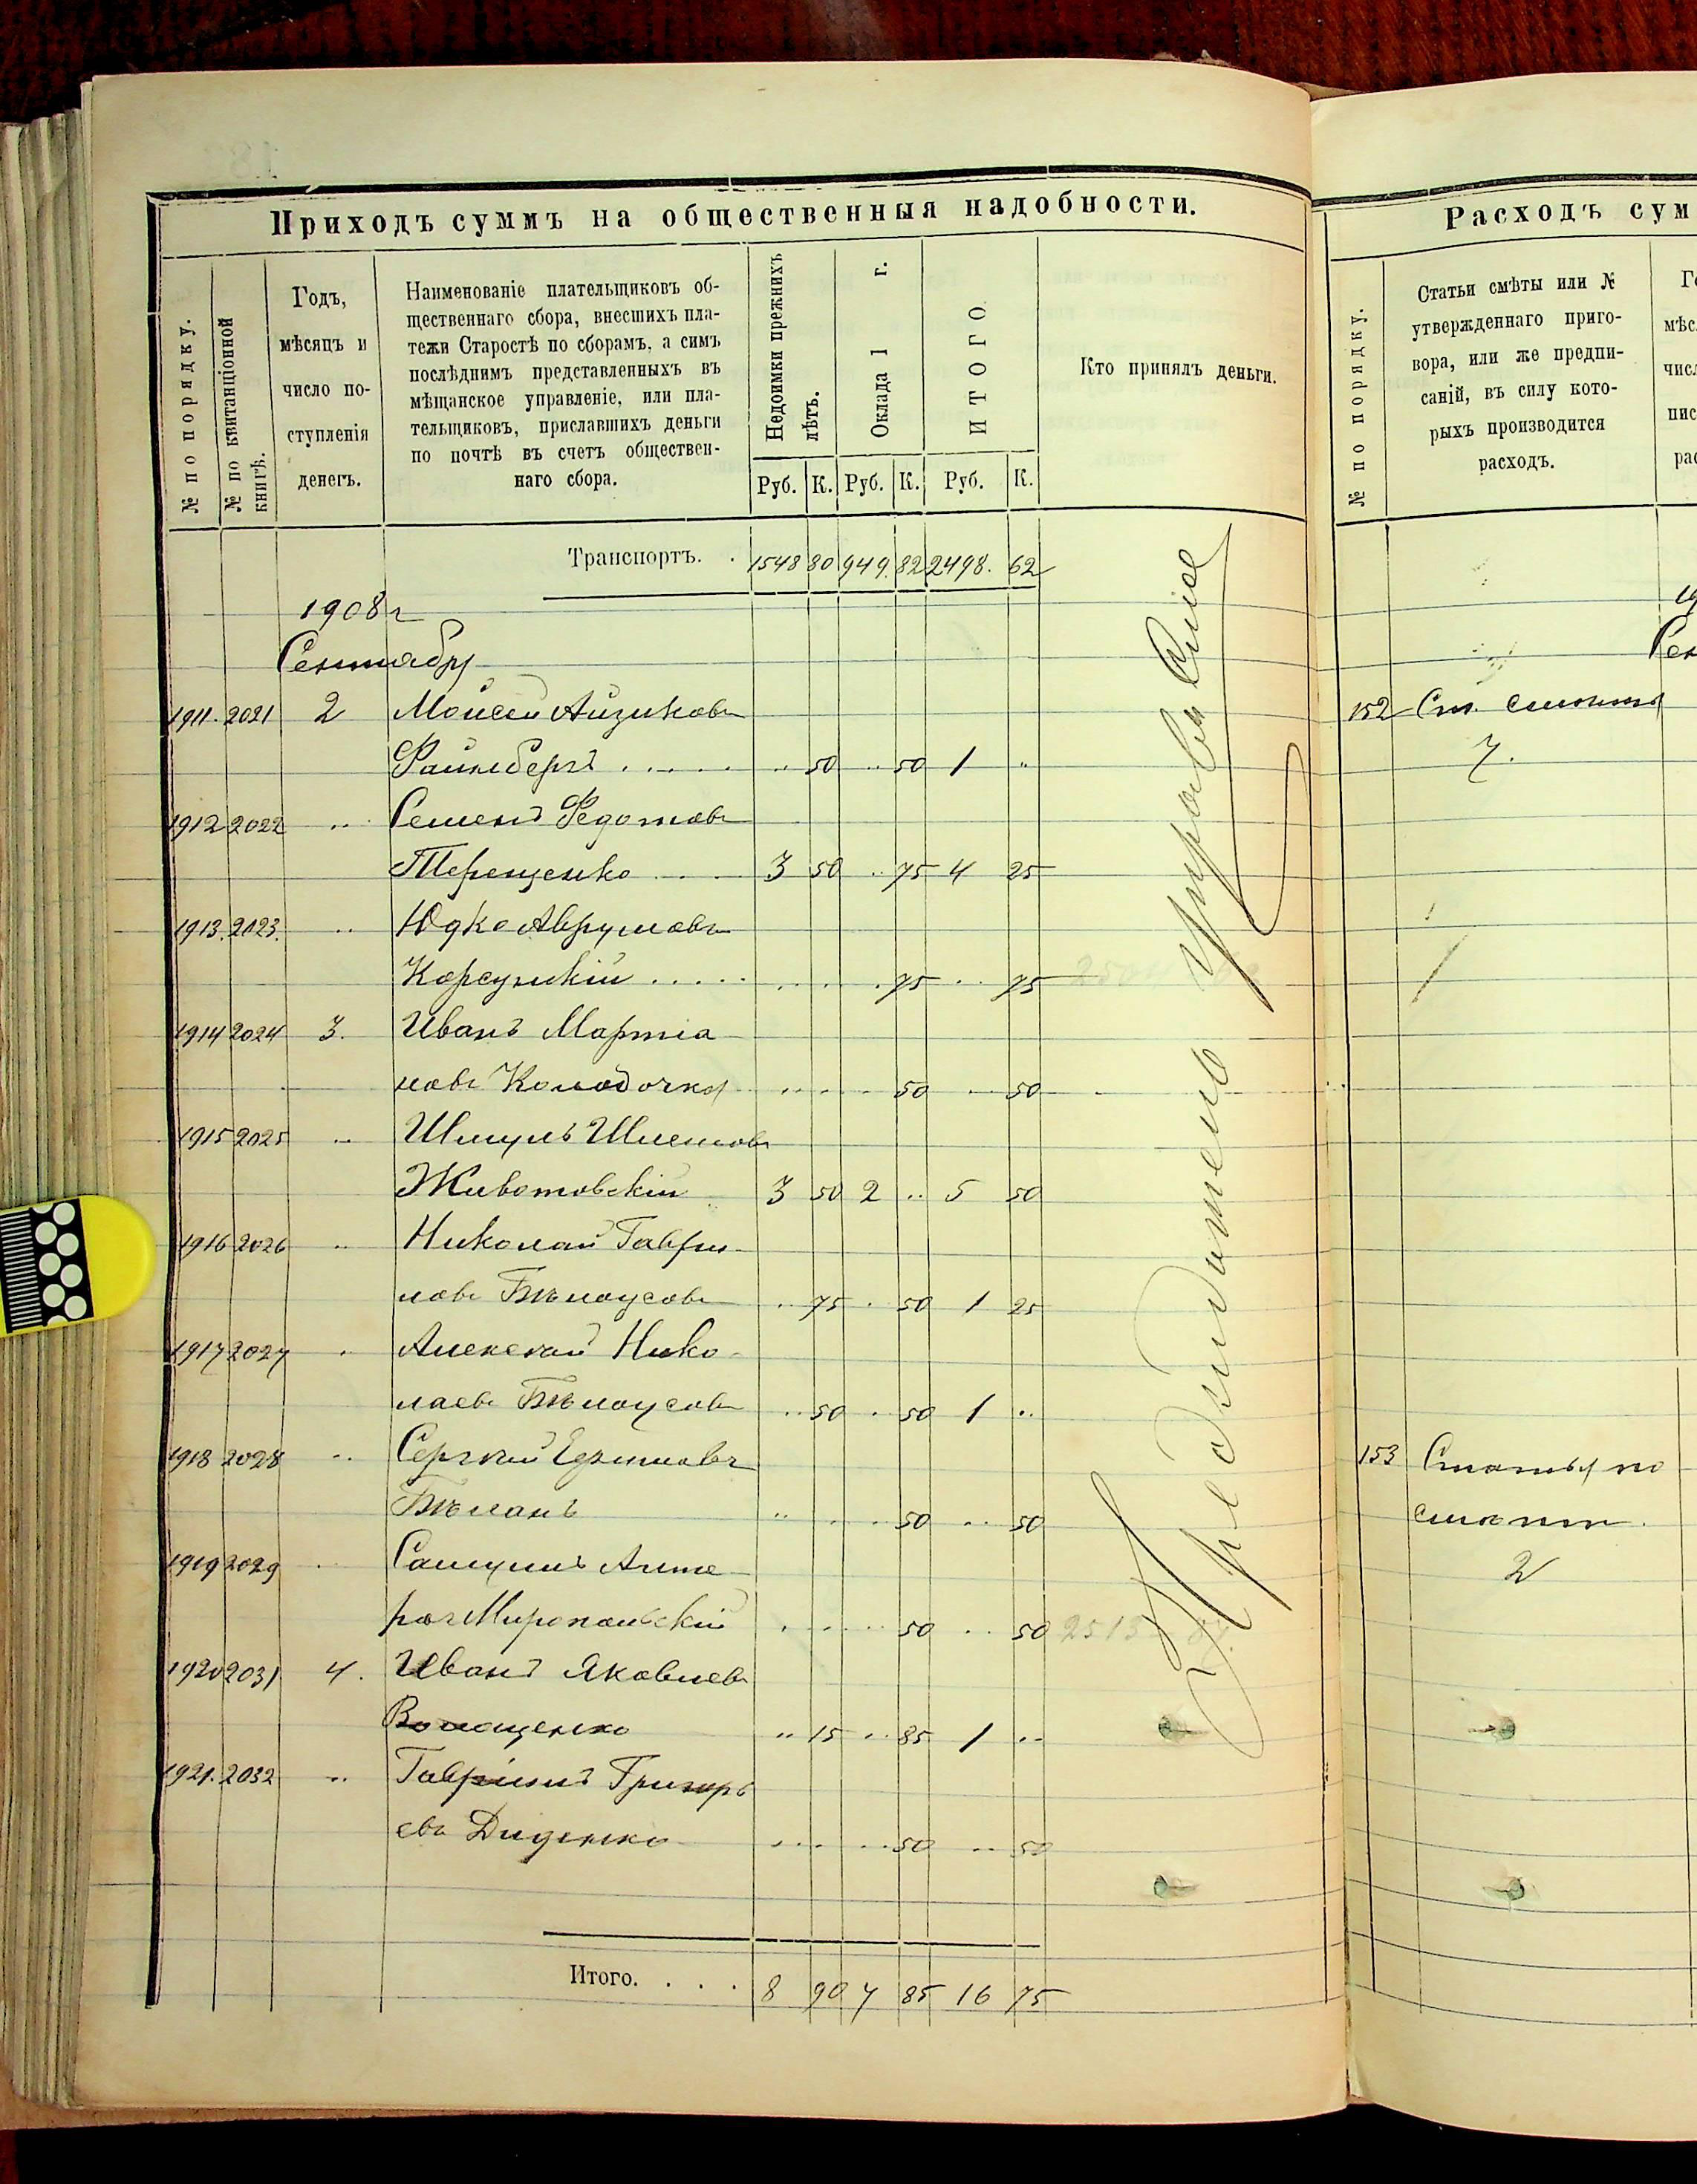 Приходъ суммъ на общественныя надобности.
№ по порядку.
№ по квитанціонной книгѣ.
Годъ,
мѣсяцъ и
число по-
ступленія
денегъ.
Наименованіе плательщиковъ об-
щественнаго сбора, внесшихъ пла-
тежи Старостѣ по сборамъ, а симъ
послѣднимъ представленныхъ въ
мѣщанское управленіе, или пла-
тельщиковъ, приславшихъ деньги
по почтѣ въ счетъ обществен-
наго сбора.
Недоимки прежнихъ лѣтъ.
Оклада 1 г.
ИТОГО
Руб. К. Руб. К. Руб. К.
Кто принялъ деньги.
Транспортъ. . 1548 80 949. 82 2498. 62
1908 г
Сентябрь
1911. 2021 2 Моисей Айзиковъ
Файнбергъ ..... .. 50 .. 50 1 ..
1912 2022 .. Семенъ Федотовъ
Терещенко .... 3 50 .. 75 4 25
1913. 2023. .. Юдко Аврумовъ
Корсунскій ..... . . . . . 75 .. 75
1914 2024 3. Иванъ Мартіа
новъ Колодочка .. .. .. 50 .. 50
1915 2025 .. Шмуль Шлемовъ
Животовскій 3 50 2 .. 5 50
1916 2026 .. Николай Гаври-
ловъ Бѣлоусовъ .. 75 . 50 1 25
1917 2027 . Алексѣй Нико-
лаевъ Бѣлоусовъ .. 50 . 50 1 ..
1918 2028 .. Сергѣй
Бѣланъ .. .. . 50 .. 50
1919 2029 .. Самуилъ Анте-
ровъ Миропольскій . . . . . 50 .. 50
1920 2031 4. Иванъ Яковлевъ
Волощенко .. 15 .. 85 1 ..
1921. 2032 .. Гавріилъ Григорь
евъ Диденко .. .. .. 50 .. 50
Итого. . . . 8 90 7 85 16 75
Расходъ сум
№ по порядку.
Статьи смѣты или №
утвержденнаго приго-
вора, или же предпи-
саній, въ силу кото-
рыхъ производится
расходъ.
Го
мѣс
числ
пис
рас
19
Сен
152 Ст. смѣты
7.
153 Статья по
смѣтѣ.
2